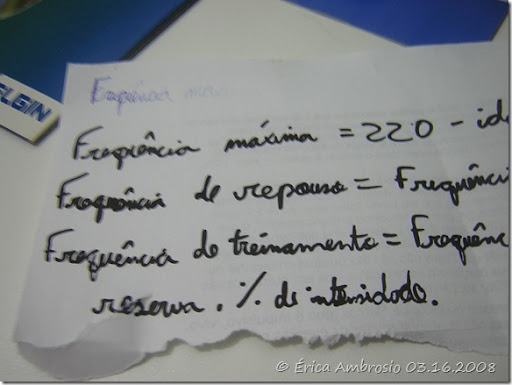 ELGIN
Frequência máxima = 220 - id
Frequência de repouso = Frequênci
Frequência de treinamento = Frequênc
reserva . % de intensidade.
© Érica Ambrosio 03.16.2008